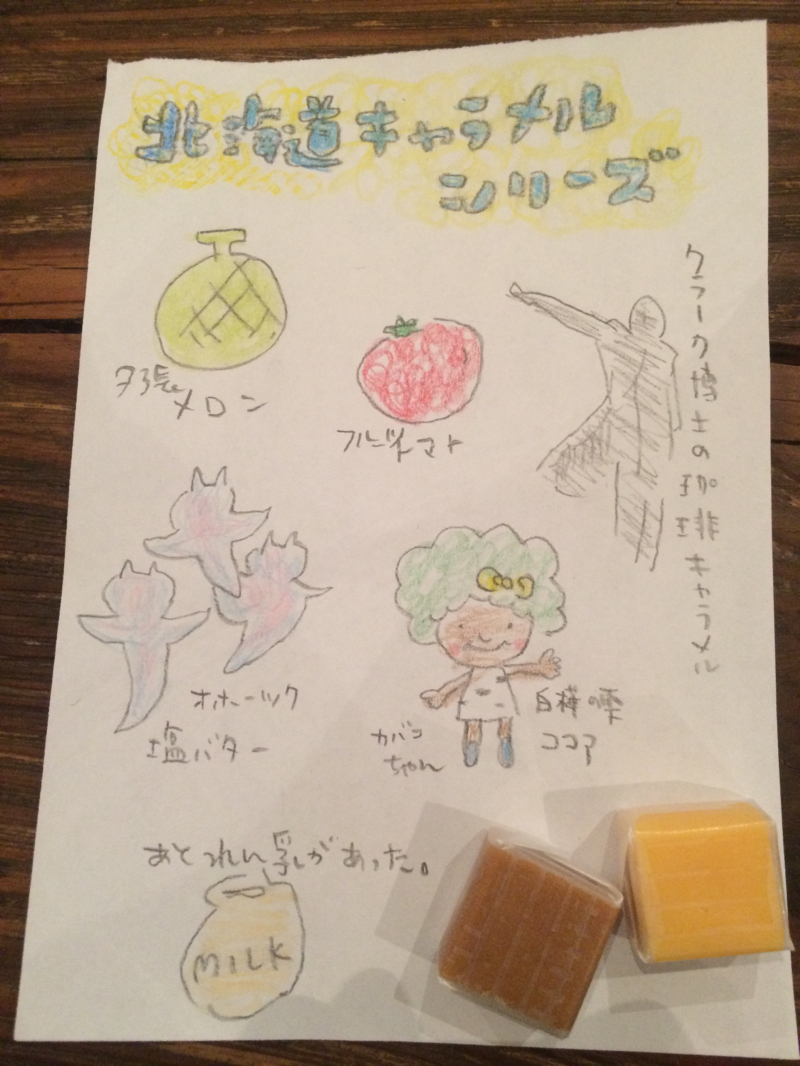 北海道キャラメル
シリーズ
クラーク博士の珈琲キャラメル
夕張
メロン
フルーツトマト
オホーツク
塩バター
カバコ
ちゃん
白樺の雫
ココア
あとれん乳があった。
MILK